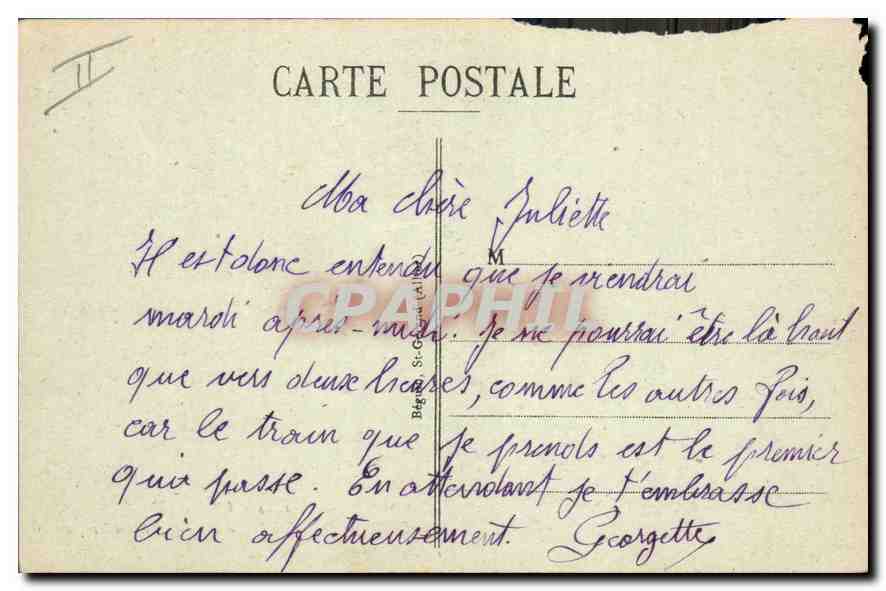 II
CARTE POSTALE
Ma chère Juliette
M
Il est donc entendu que je viendrai
mardi après-midi. Je ne pourrai être là haut
que vers deux heures, comme les autres fois,
car le train que je prends est le premier
qui passe. En attendant je t'embrasse
bien affectueusement. Georgette
St-
CPAPHIL